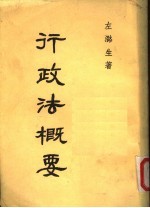 左潞生著
行政法概要